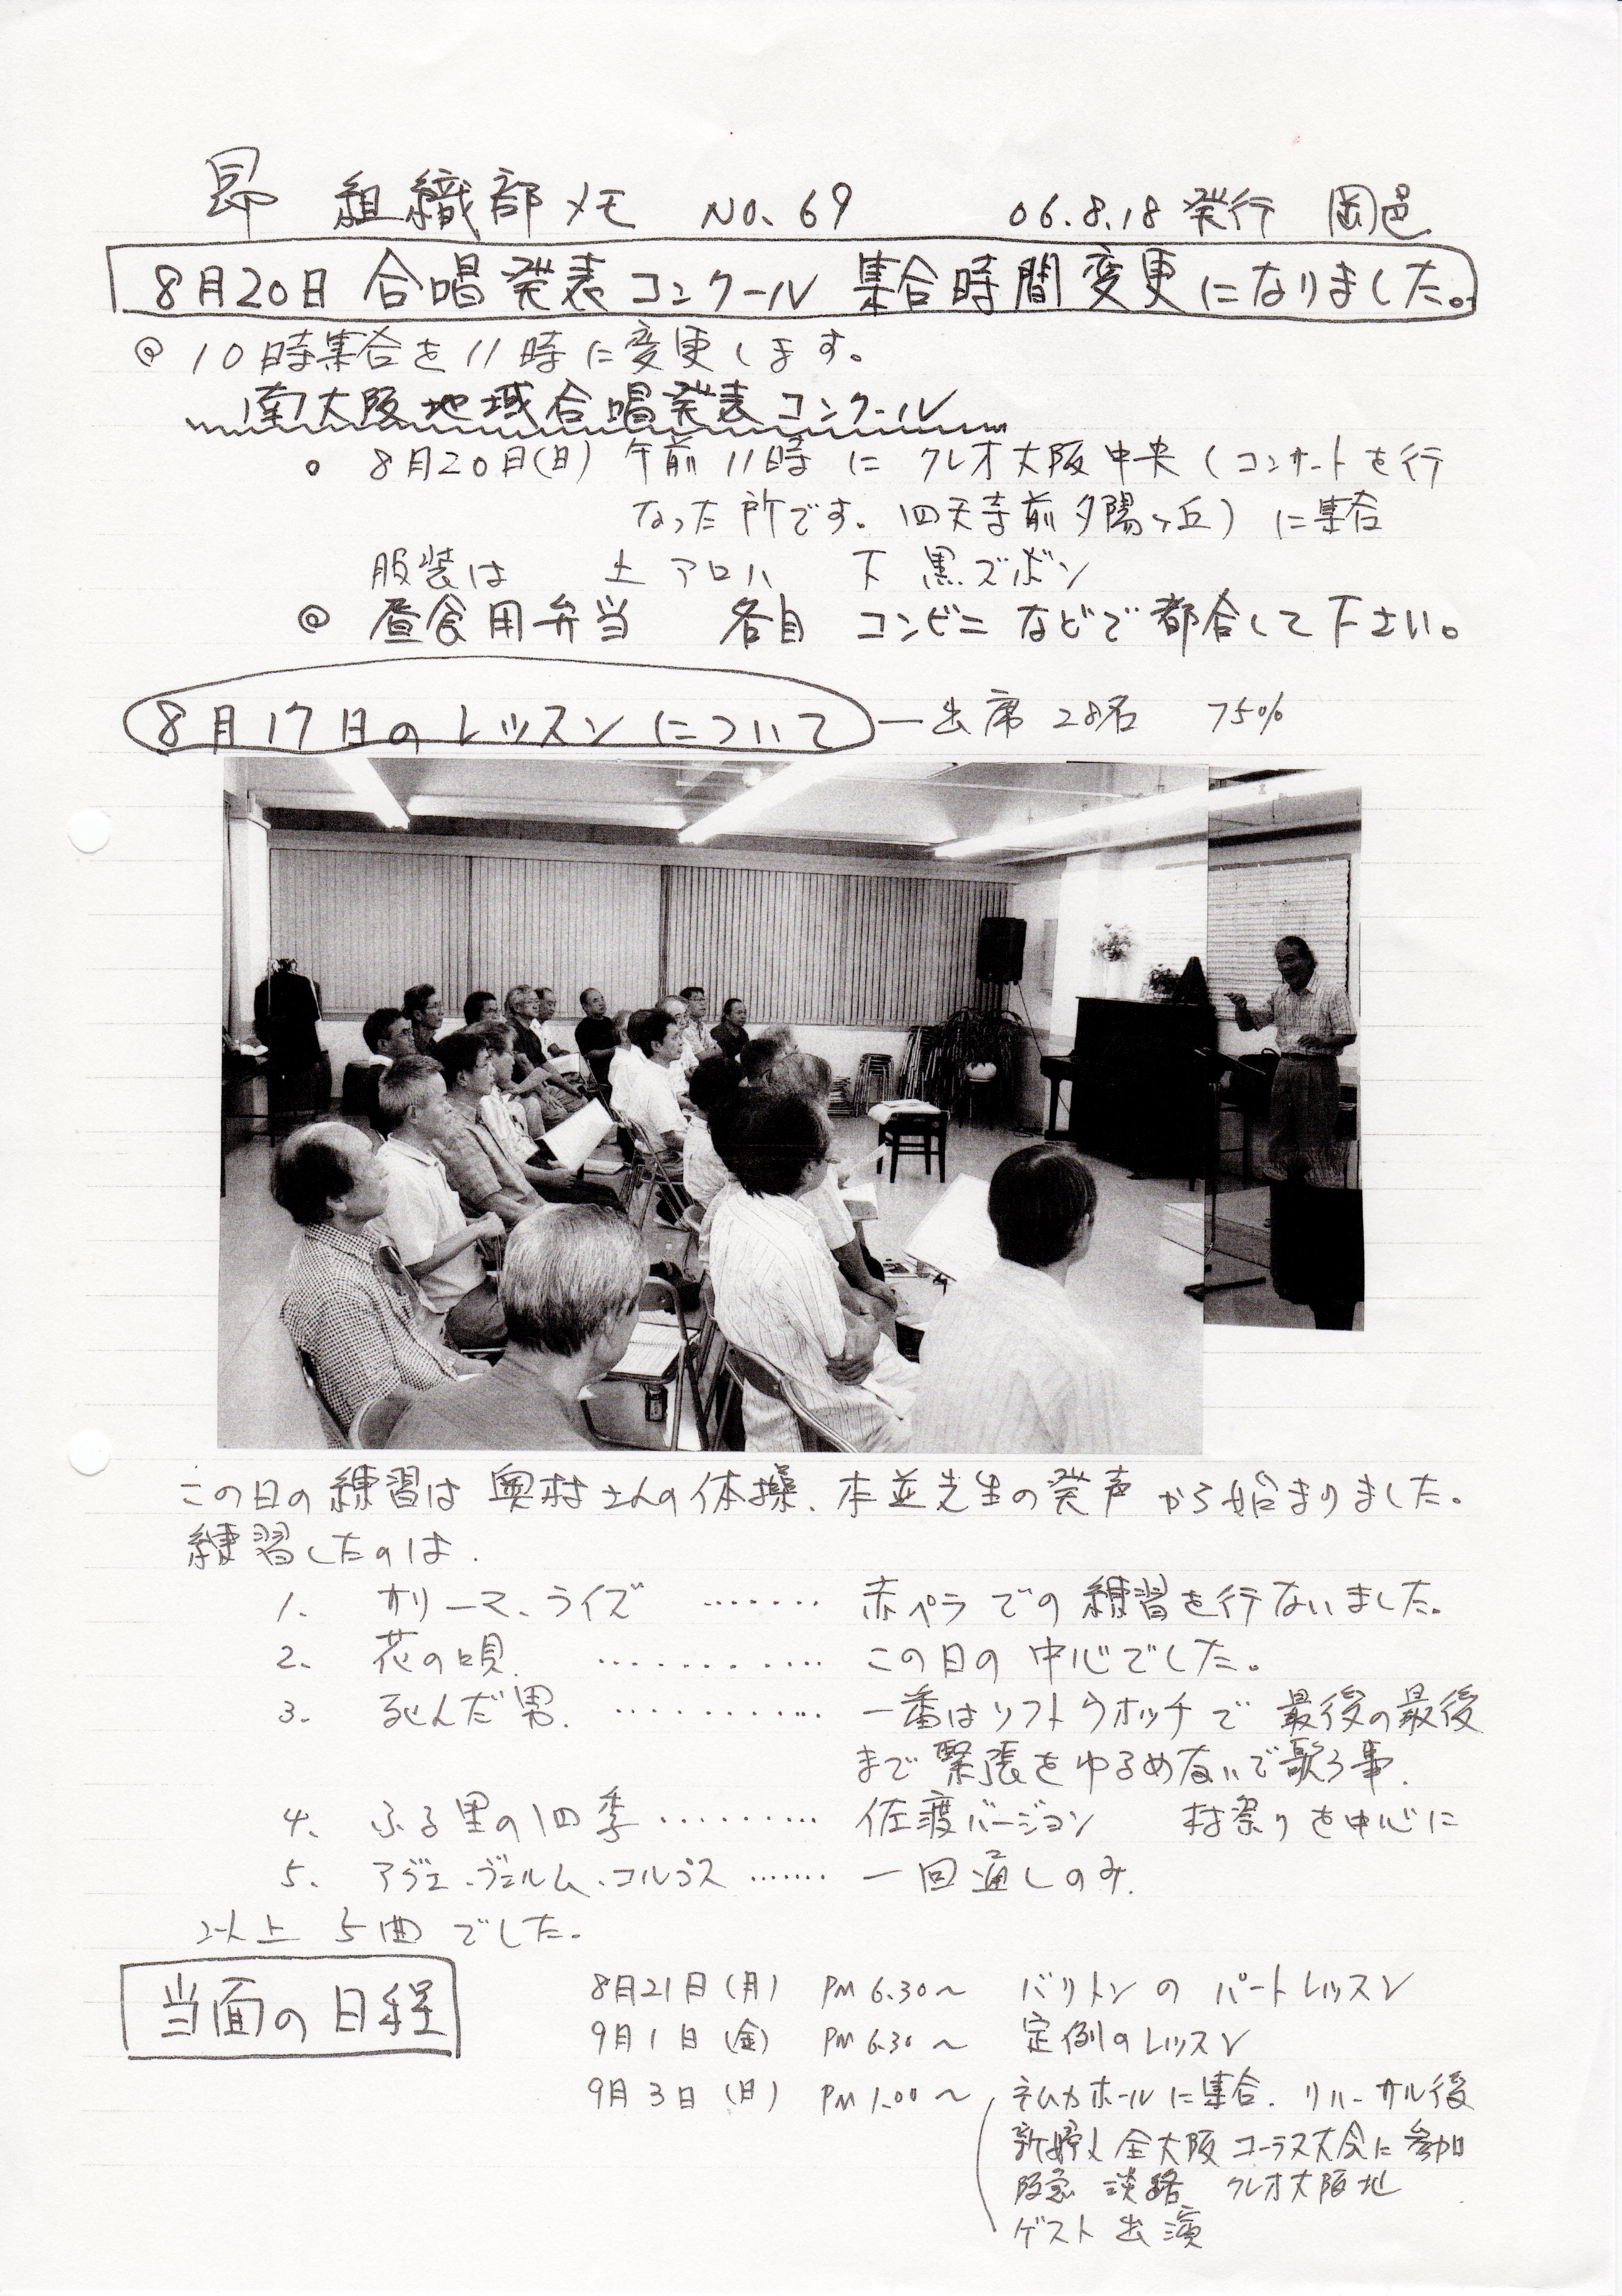 昴 組織部メモ No. 69 06.8.18 発行 岡邑
8月20日 合唱発表コンクール 集合時間変更になりました。
@ 10時集合を11時に変更します。
南大阪地域合唱発表コンクール
○ 8月20日(日) 午前11時に クレオ大阪中央 (コンサートを行
なった所です。四天寺前夕陽ヶ丘) に集合
服装は 上 アロハ 下 黒ズボン
@ 昼食用弁当 各自 コンビニなどで都合して下さい。
8月17日のレッスンについて ー出席 28名 75%
この日の練習は 奥村さんの体操、本並先生の発声 から始まりました。
練習したのは.
1、 カリーマ、ライズ ……. 赤ペラでの練習を行ないました。
2、 花の唄. ………… この日の中心でした。
3、 死んだ男. ………… 一番はソフトウオッチで 最後の最後
まで緊張をゆるめないで歌う事.
4、 ふる里の四季 ……… 佐渡バージョン 村祭りを中心に
5、 アヴェ、ヴェルム、コルプス ……. 一回通しのみ.
以上 5曲でした。
当面の日程
8月21日(月) PM 6.30〜 バリトンの パートレッスン
9月1日(金) PM 6.30〜 定例のレッスン
9月3日(日) PM 1.00〜 ネムカホールに集合. リハーサル後
新婦人全大阪コーラス大会に参加
阪急 淡路 クレオ大阪北
ゲスト出演